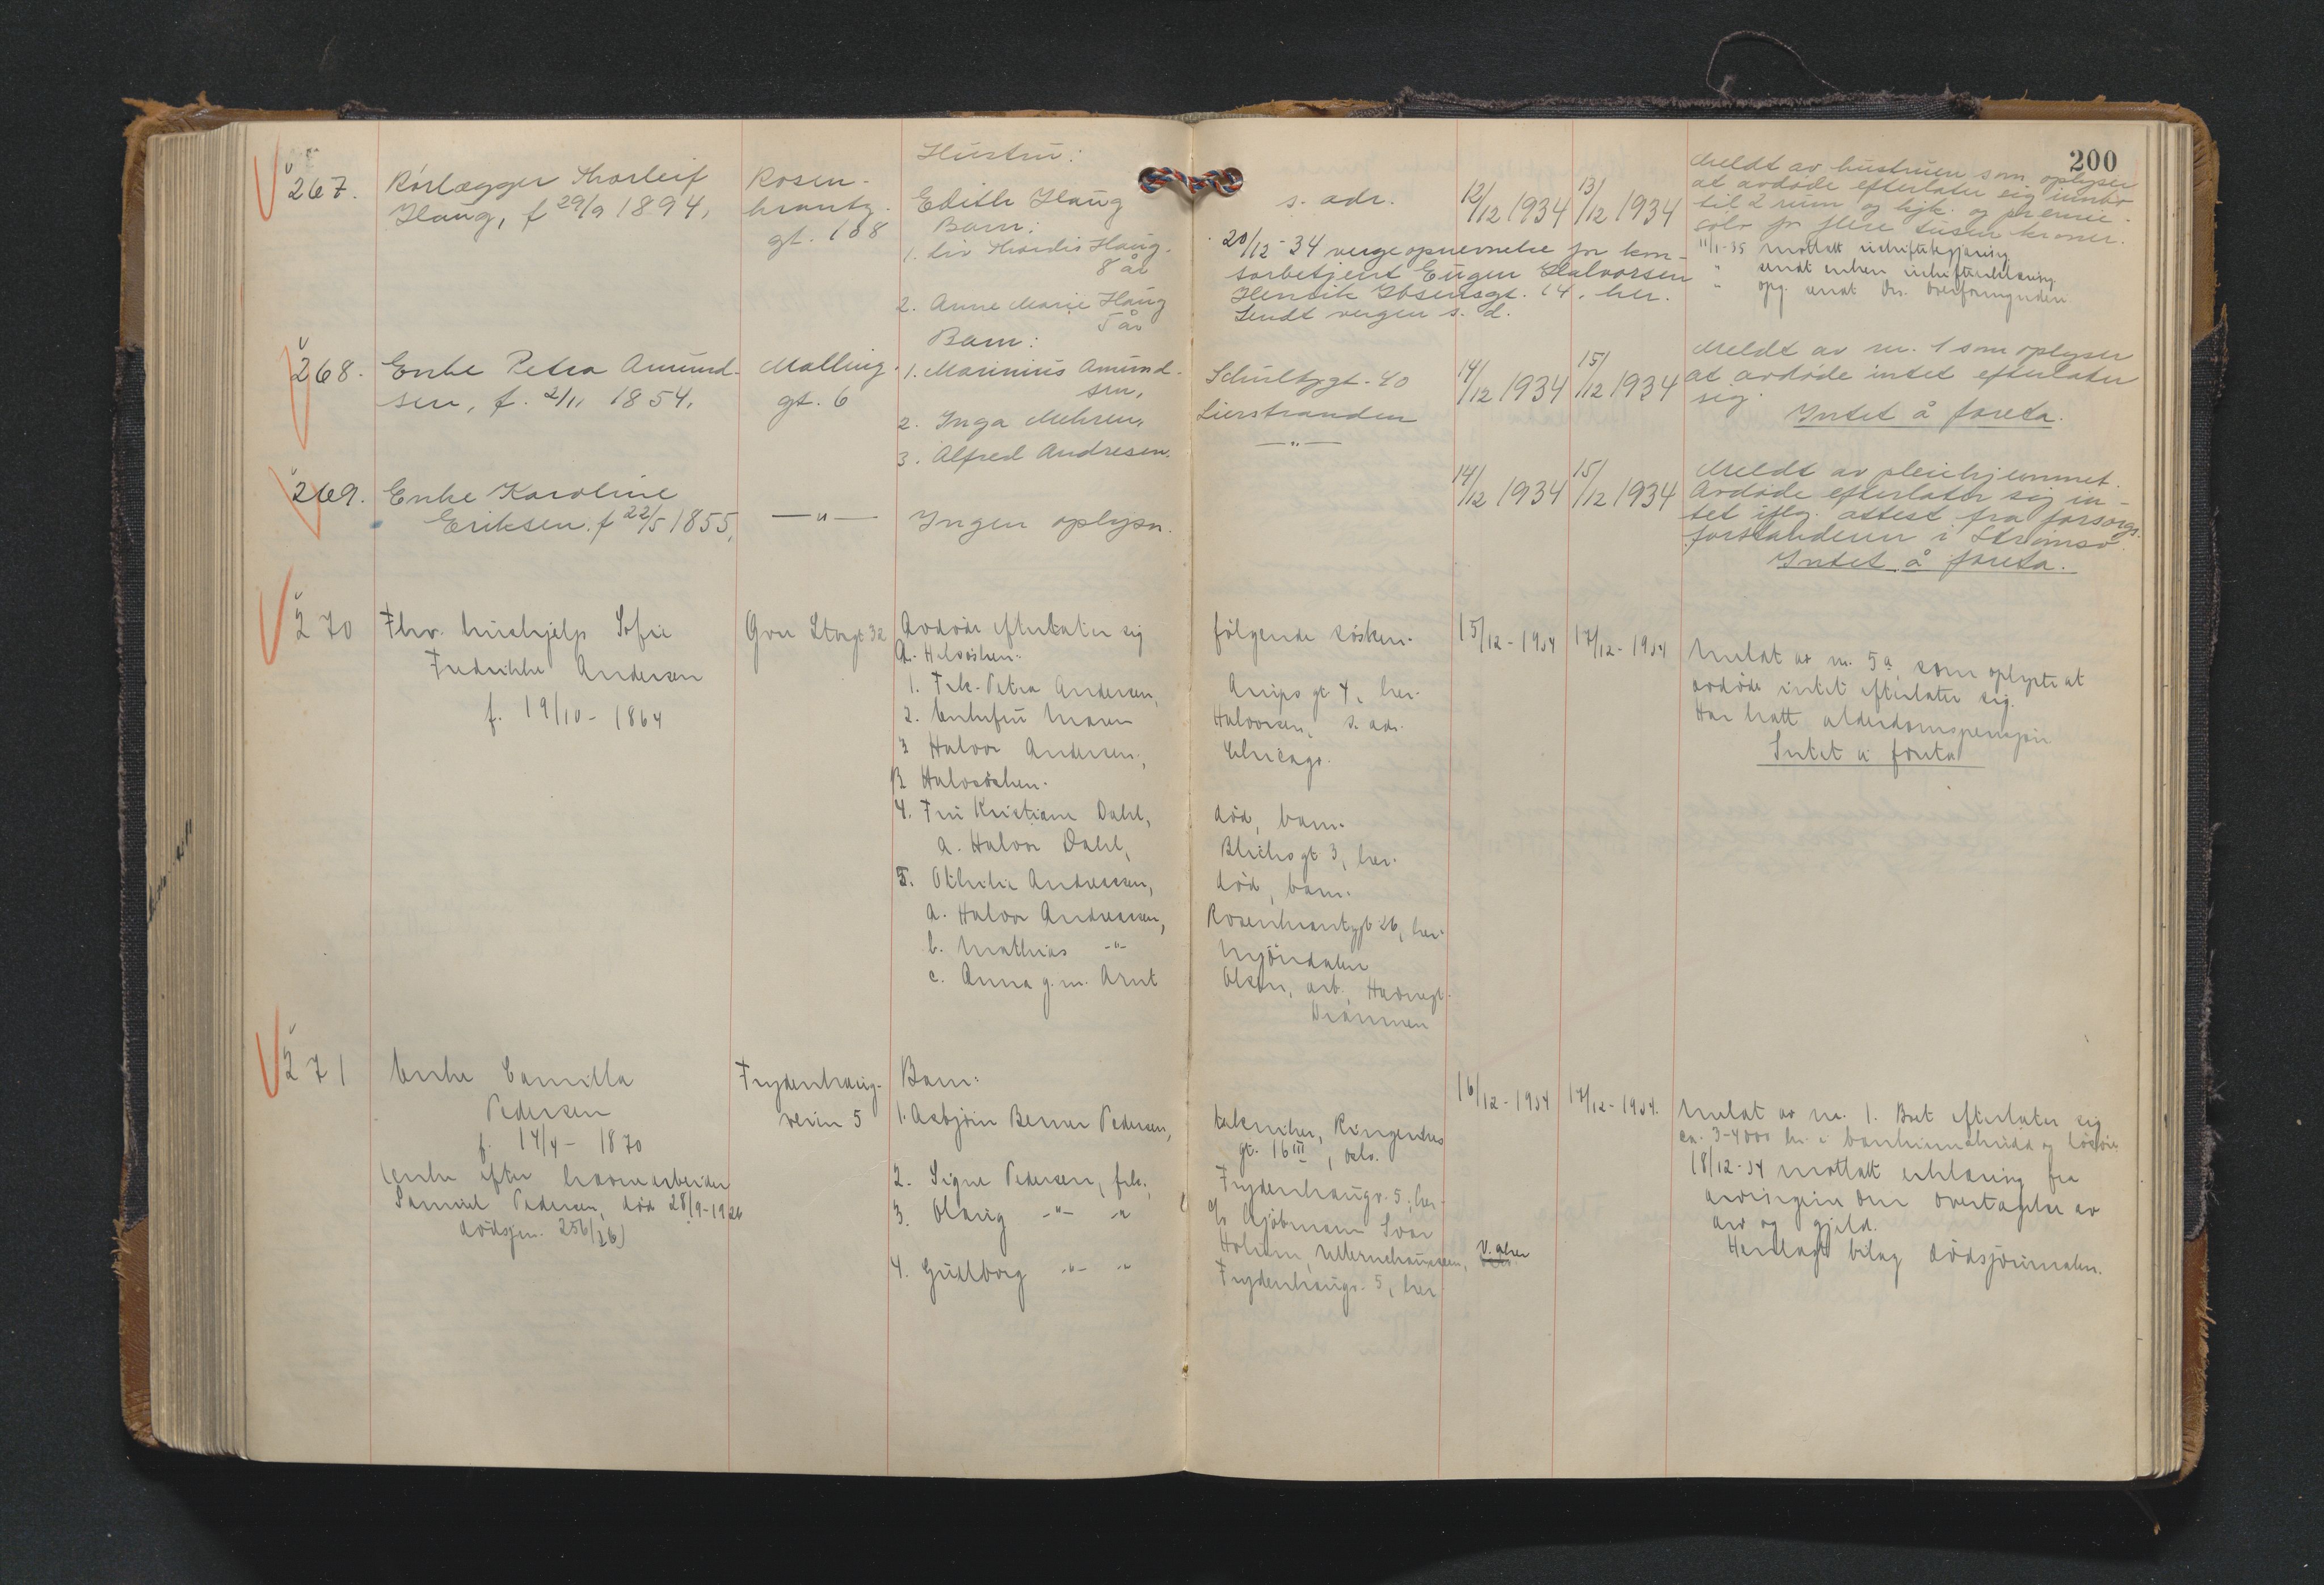 200
267.
Rørlægger Thorleif
Haug, f 29/9 1894,
Rosen-
krantz
gt. 188
Hustru:
Edith Haug
Barn:
1. Liv Thordis Haug.
8 år
2. Anne Marie Haug
5 år
s. adr.
20/12-34 vergeopnevnelse for kon-
torbetjent Eugen Halvorsen
Henrik Ibsensgt. 14, her.
Sendt vergen s. d.
12/12 1934
13/12 1934
Meldt av hustruen som oplyser
at avdøde efterlater sig innbo
til 2 rum og kjk. og premie-
sølv for flere tusen kroner.
11/1-35 mottatt
" sendt enken
" opg. sendt Dr. Overformynderi
268.
Enke Petra Amund-
sen, f. 2/11 1854,
Malling
gt. 6
Barn:
1. Marinius Amund-
sen,
2. Inga Mehren,
3. Alfred Andresen.
Schultzgt. 40
Lierstranden
—"—
14/12 1934
15/12 1934
Meldt av nr. 1 som oplyser
at avdøde intet efterlater
sig.
Intet å foreta.
269.
Enke Karoline
Eriksen. f 22/5 1855,
—"—
Ingen oplysn.
14/12 1934
15/12 1934
Meldt av pleiehjemmet.
Avdøde efterlater sig in-
tet iflg. attest fra forsorgs-
forstanderen i Strømsø.
Intet å foreta.
270
Fhv. hushjelp Sofie
Fredrikke Andersen
f. 19/10 - 1864
Gvre Storgt 32
Avdøde efterlater sig
A. Helsøsken:
1. Frk. Petra Andersen,
2. Enkefru Maren
3 Halvor Andersen,
B Halvsøsken.
4. Fru Kristiane Dahl,
a. Halvor Dahl,
5. Othilie Andreassen,
a. Halvor Andreassen,
b. Mathias -"-
c. Anna g.m. Arnt
følgende søsken.
gt 4, her.
Halvorsen, s. adr.
Chicago.
død, barn.
Blichsgt 3, her.
død, barn.
Rosenkrantzgt 26, her.
Mjøndalen
Olsen, arb., Havnegt.
Drammen
15/12-1934
17/12-1934
Meldt av nr. 5a som oplyste at
avdøde intet efterlater sig.
Har hatt alderdomspensjon
Intet å foreta
271
Enke Camilla
Pedersen
f. 14/4 - 1870
(enke efter havnearbeider
Samuel Pedersen, død 28/9-1926
dødsjrn. 256/26)
Frydenhaug-
veien 5
Barn:
1. Asbjørn Berner Pedersen,
2. Signe Pedersen, frk.,
3. Olaug -"- "
4. Gudborg -"- "
tekniker, Ringeriks
gt. 16 III, Oslo.
Frydenhaugv. 5, her.
c/o kjøbmann Ivar
Holum, Ullernchausseen, V. Aker
Frydenhaugv. 5, her
16/12-1934
17/12-1934.
Meldt av nr. 1. Boet efterlater sig
ca. 3-4000 kr. i bankinnskudd og løsøre
18/12-34 mottatt erklæring fra
arvingene om overtagelse av
arv og gjeld.
Henlagt bilag dødsjournalen.